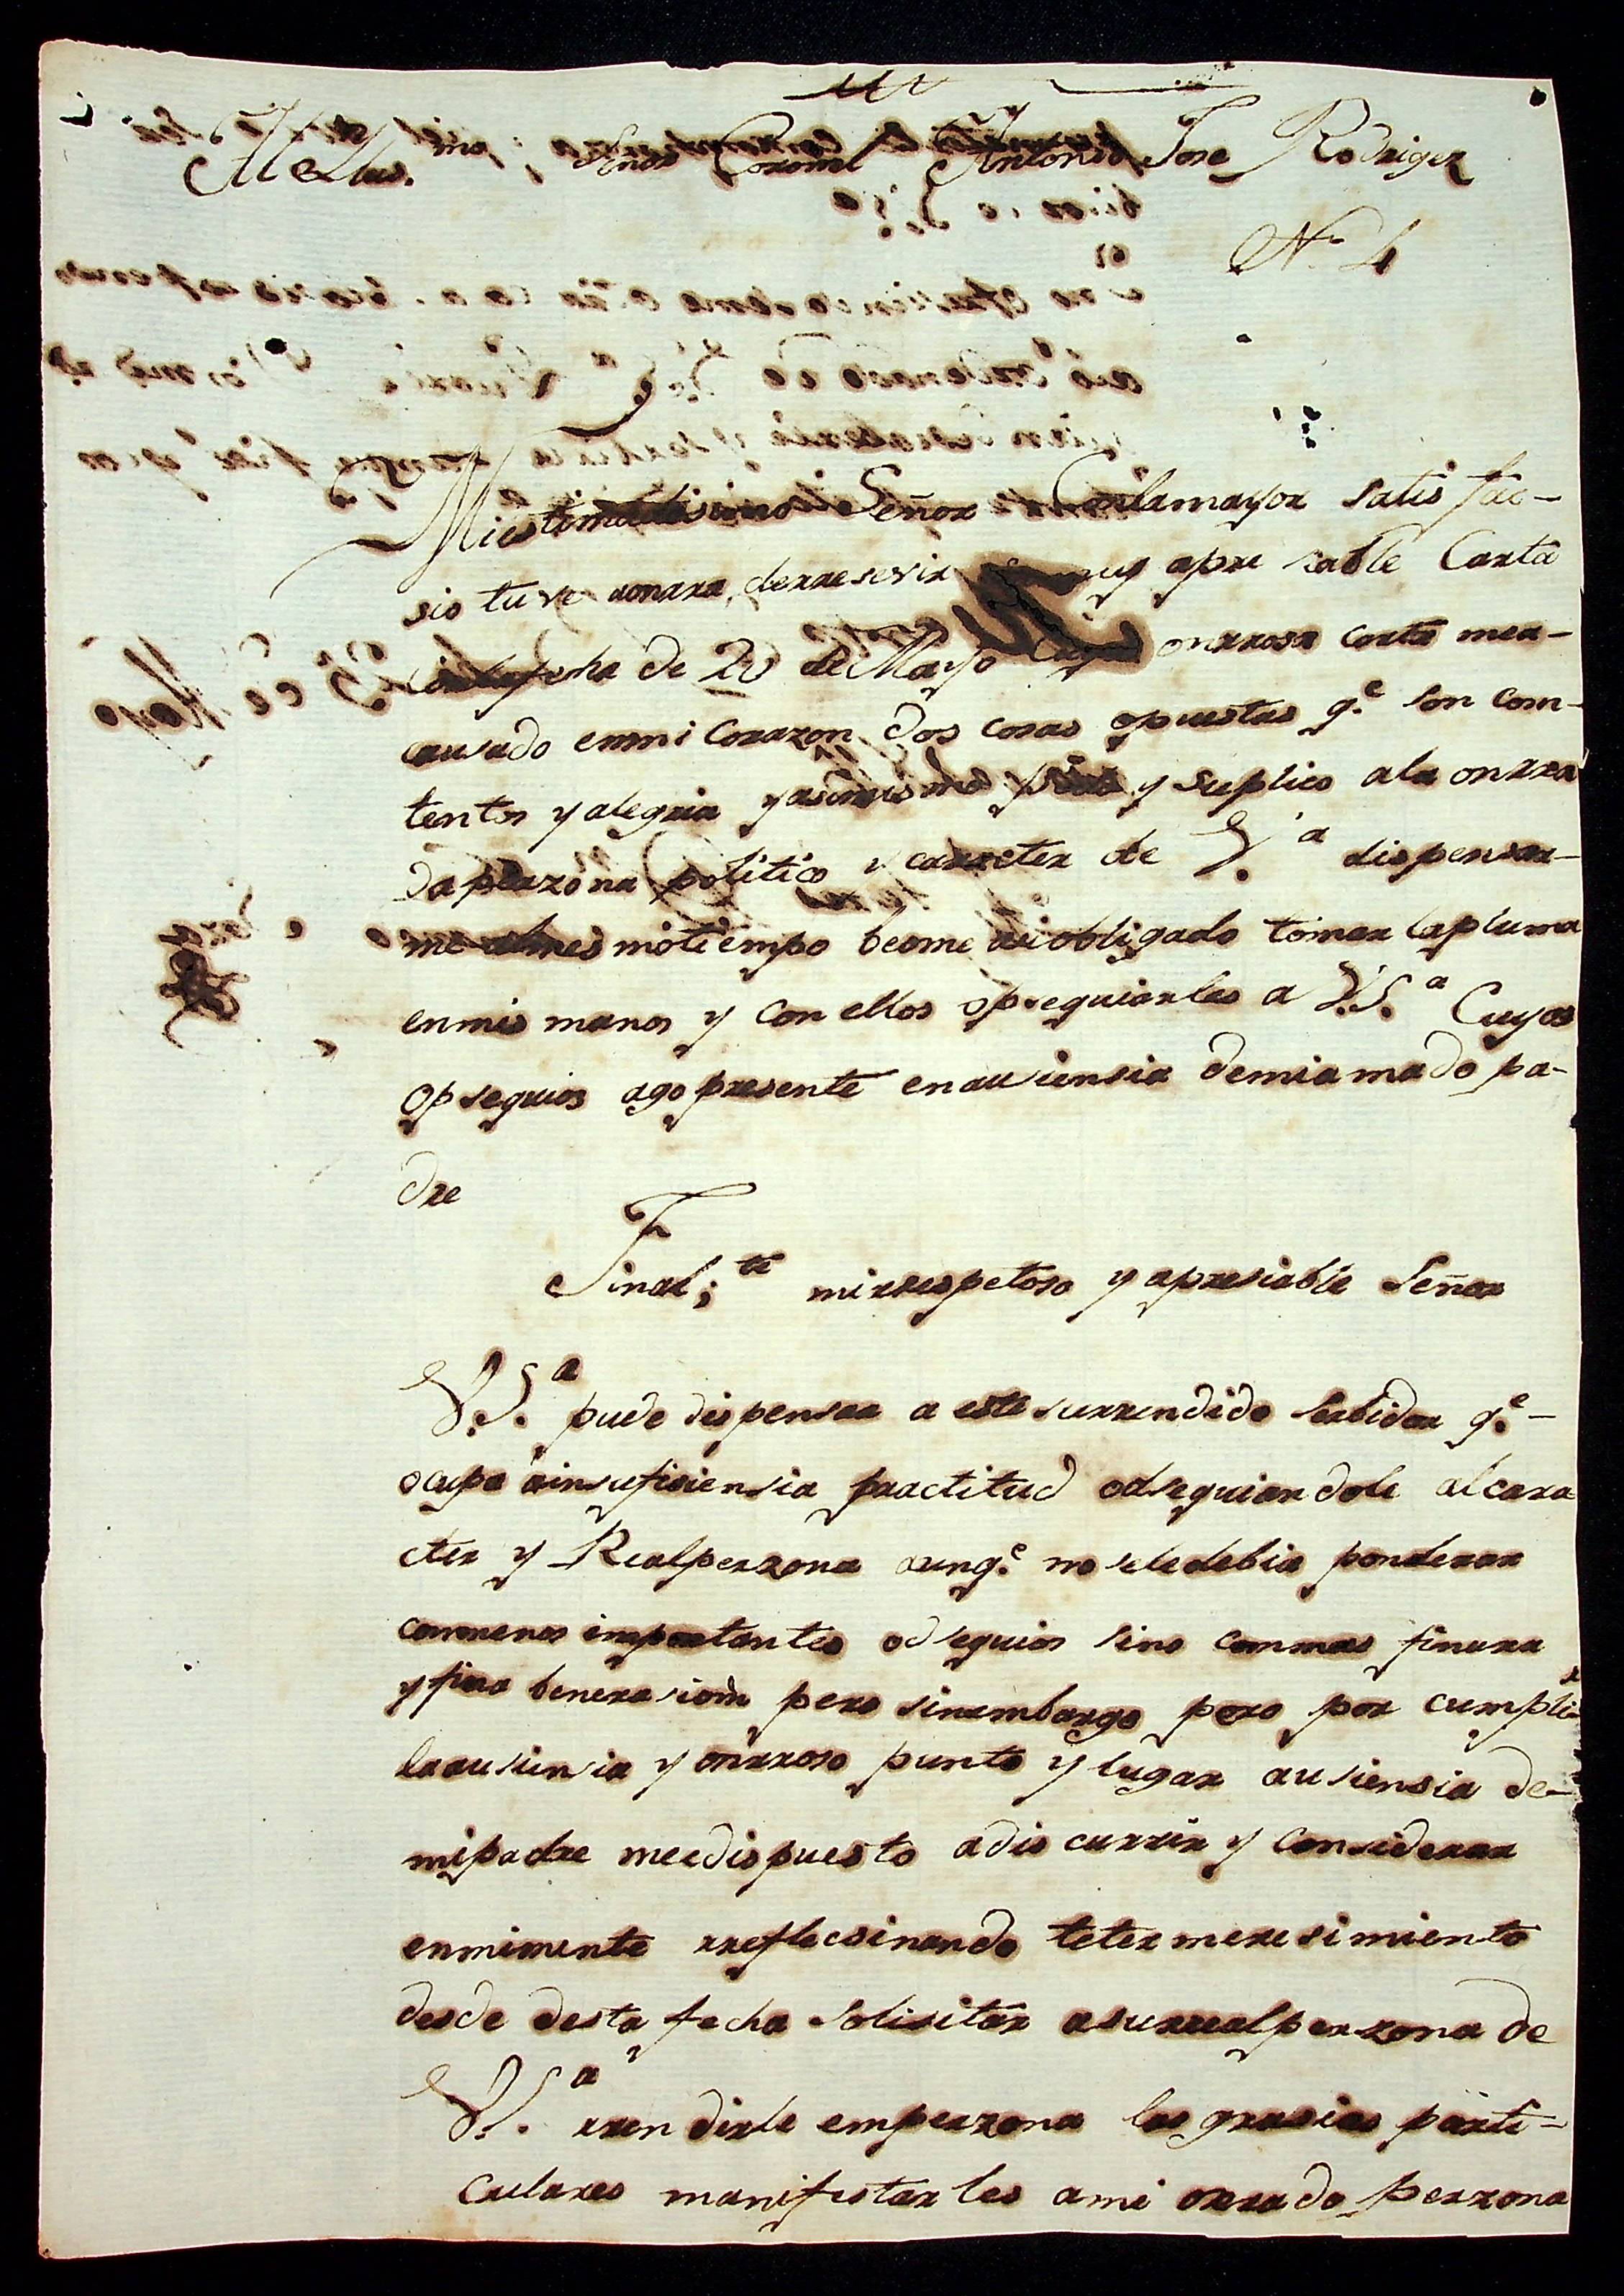 Señor Coronel Antonio Jose Rodrigez
N.º 4
Miestimadisimo Señor Conlamayor satis fac-
sio tuve aonrra, derresevir muy apre sable Carta
conlafecha de 20 de Mayo Cuya onrrosa carta mea-
causado enmi Corazon dos cosas opuestas q.e son com-
tentos y alegria yasimismo pido y suplico ala onrra
daperzona politico y carracter de V.a dispensar-
me almes motiempo beome asiobligado tomar lapluma
enmis manos y con ellos opsequiarles a V.S.a Cuyos
opsequios ago presente enausiensia demiamado pa-
dre
Final;te mirrespetoso y apresiable Señor
V.S.a puede dispensar a este surrendido serbidor q.e -
ocupa ainsufisiensia practitud odsequiandole alcara
cter y Realperzona aunq.e no seledebia ponderar
conmenos importantes odsequios sino conmas finura
y fina benerasion pero sinembargo pero por cumplir
laausiensia y onrroso punto y lugar ausiensia de-
mipadre meedispuesto adis currir y considerar
enmimente rreflecsinando tetermeresimiento
desde desta fecha solisitar asurrealperzona de
V.S.a rren dirle emperzona las grasias parti-
culares manifestarles ami onrrado perzona